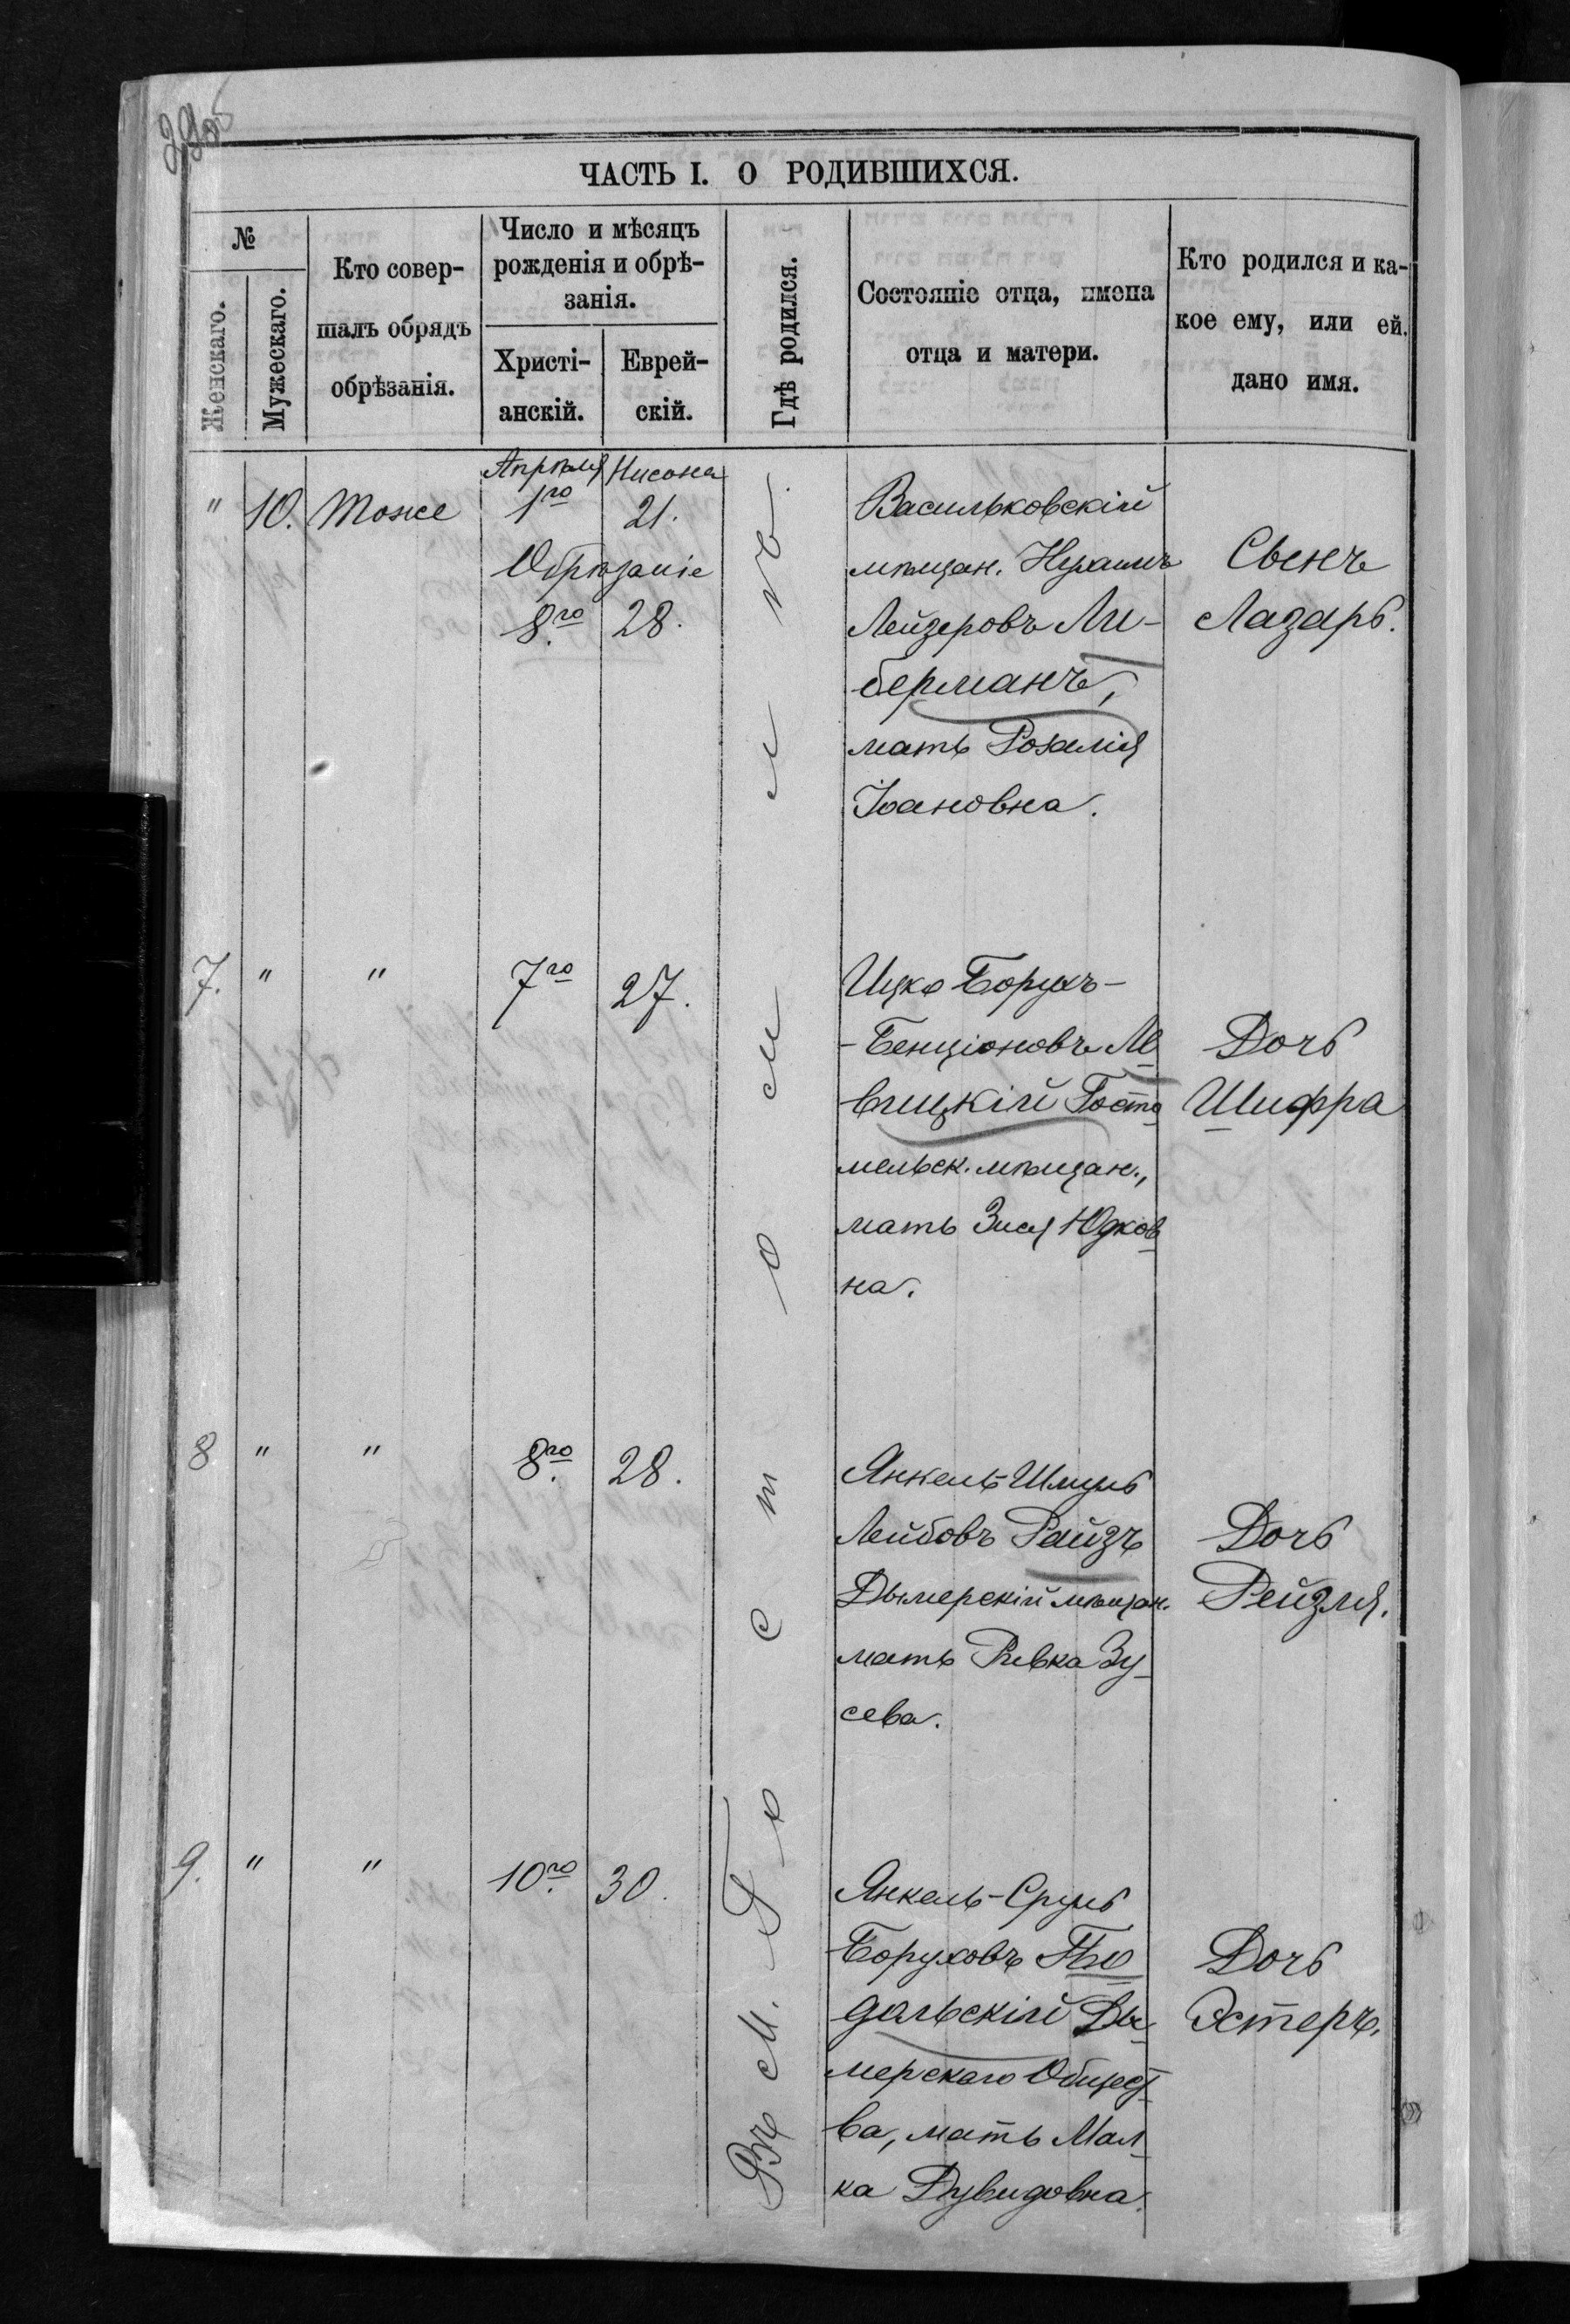 ЧАСТЬ I. О РОДИВШИХСЯ.
№
Женскаго.
Мужескаго.
Кто совер-
шалъ обрядъ
обрѣзанія.
Число и мѣсяцъ
рожденія и обрѣ-
занія.
Христі-
анскій.
Еврей-
скій.
Гдѣ родился.
Состояніе отца, имена
отца и матери.
Кто родился и ка-
кое ему, или ей.
дано имя.
Въ м. Гостомлѣ.
" 10. Тоже
Апрѣля Нисона
1го 21.
Обрѣзаніе
8го 28.
Васильковскій
мѣщан. Нухимъ
Лейзеровъ Ли-
берманъ,
мать Розалія
Іоановна.
Сынъ
Лазарь.
7. " " 7го 27.
Ицко Борухъ-
-Бенціоновъ Ле
вицкій Госто
мельск. мѣщан.,
мать Зися Юдков
на.
Дочь
Шифра
8 " " 8го 28.
Янкель-Шмуль
Лейбовъ Райзъ
Дымерскій мѣщан.
мать Ривка Зу
сева.
Дочь
Рейзля.
9. " " 10го 30.
Янкель-Сруль
Боруховъ По
дольскій Ды
мерскаго Общест
ва, мать Мал
ка Дувидовна.
Дочь
Эстеръ.